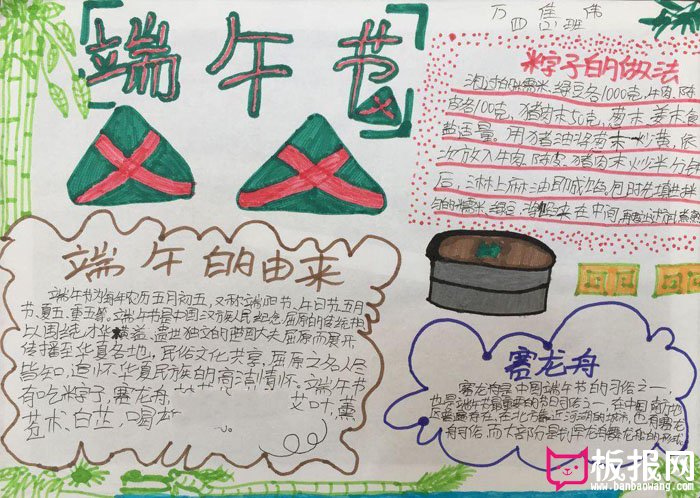 端午节
万佳伟
四(3)班
粽子的做法
泡过的糯米、绿豆各1000克,牛肉、陈
皮各100克,猪肉末50克,葱末、姜末食
盐适量。用猪油将肉末炒黄,依
次放入牛肉,陈皮,猪肉末炒半分钟
后,淋上麻油即成馅。同时先填些拌
匀的糯米、绿豆,
在中间,
端午的由来
端午节为每年农历五月初五,又称端阳节、午日节、五月
节、夏五、重五等。端午节是中国汉族人民纪念屈原的传统节日,
以围绕才华横溢、遗世独立的楚国大夫屈原而展开,
传播至华夏各地,民俗文化共享,屈原之名人尽
皆知,追怀华夏民族的高洁情怀。端午节
有吃粽子,赛龙舟,
艾叶,薰
苍术、白芷,喝
赛龙舟
赛龙舟是中国端午节的习俗之一,
也是端午节最重要的节日习俗之一,在中国南方地
区普遍存在,在北方靠近河湖的城市也有赛龙
舟习俗,而大部分是划旱龙舟舞龙船的形式。
板报网
www.banbaowang.com